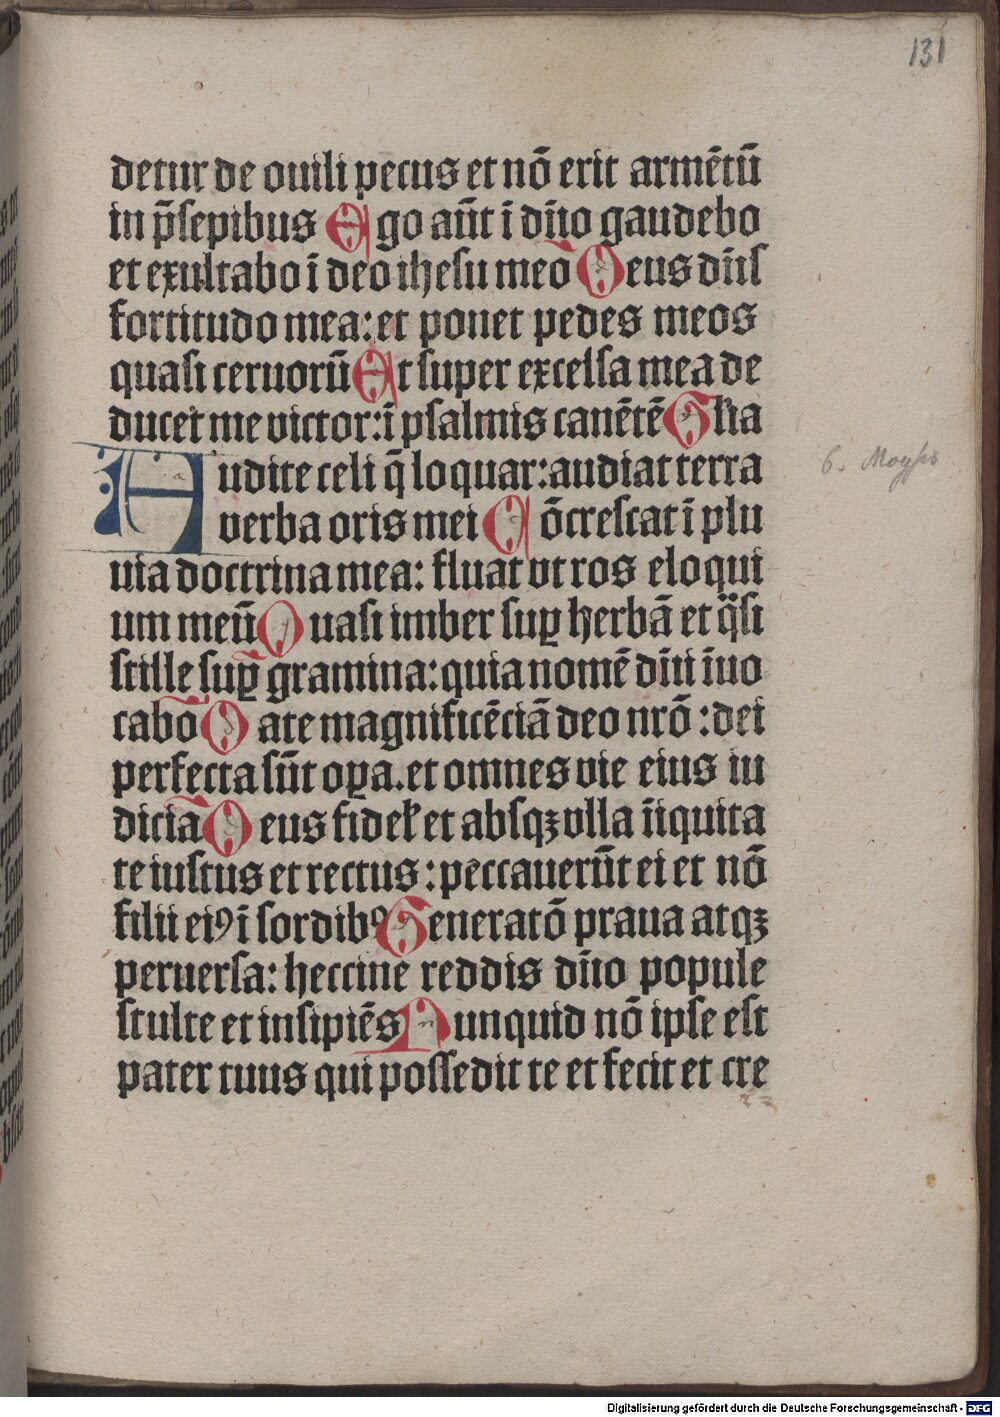 131
detur de ouili pecus et nō erit armētū
in p̄sepibus Ego aūt ī dn̄o gaudebo
et exultabo ī deo ihesu meo Deus dn̄s
fortitudo mea: et ponet pedes meos
quasi ceruorū Et super excelsa mea de
ducet me victor: ī psalmis canētē Gl̓ia
Audite celi q̄ loquar: audiat terra
verba oris mei Cōcrescat ī plu
uia doctrina mea: fluat vt ros eloqui
um meū Quasi imber suꝑ herbā et q̄si
stille suꝑ gramina: quia nomē dn̄i īuo
cabo Date magnificēciā deo nrō: dei
perfecta sūt oꝑa. et omnes vie eius iu
dicia Deus fidel̓ et absqꝫ vlla īiquita
te iustus et rectus: peccauerūt ei et nō
filii eiꝰ ī sordibꝰ Generatō praua atqꝫ
peruersa: heccine reddis dn̄o popule
stulte et insipiēs Nunquid nō ipse est
pater tuus qui possedit te et fecit et cre
6. Moyses
Digitalisierung gefördert durch die Deutsche Forschungsgemeinschaft - DFG